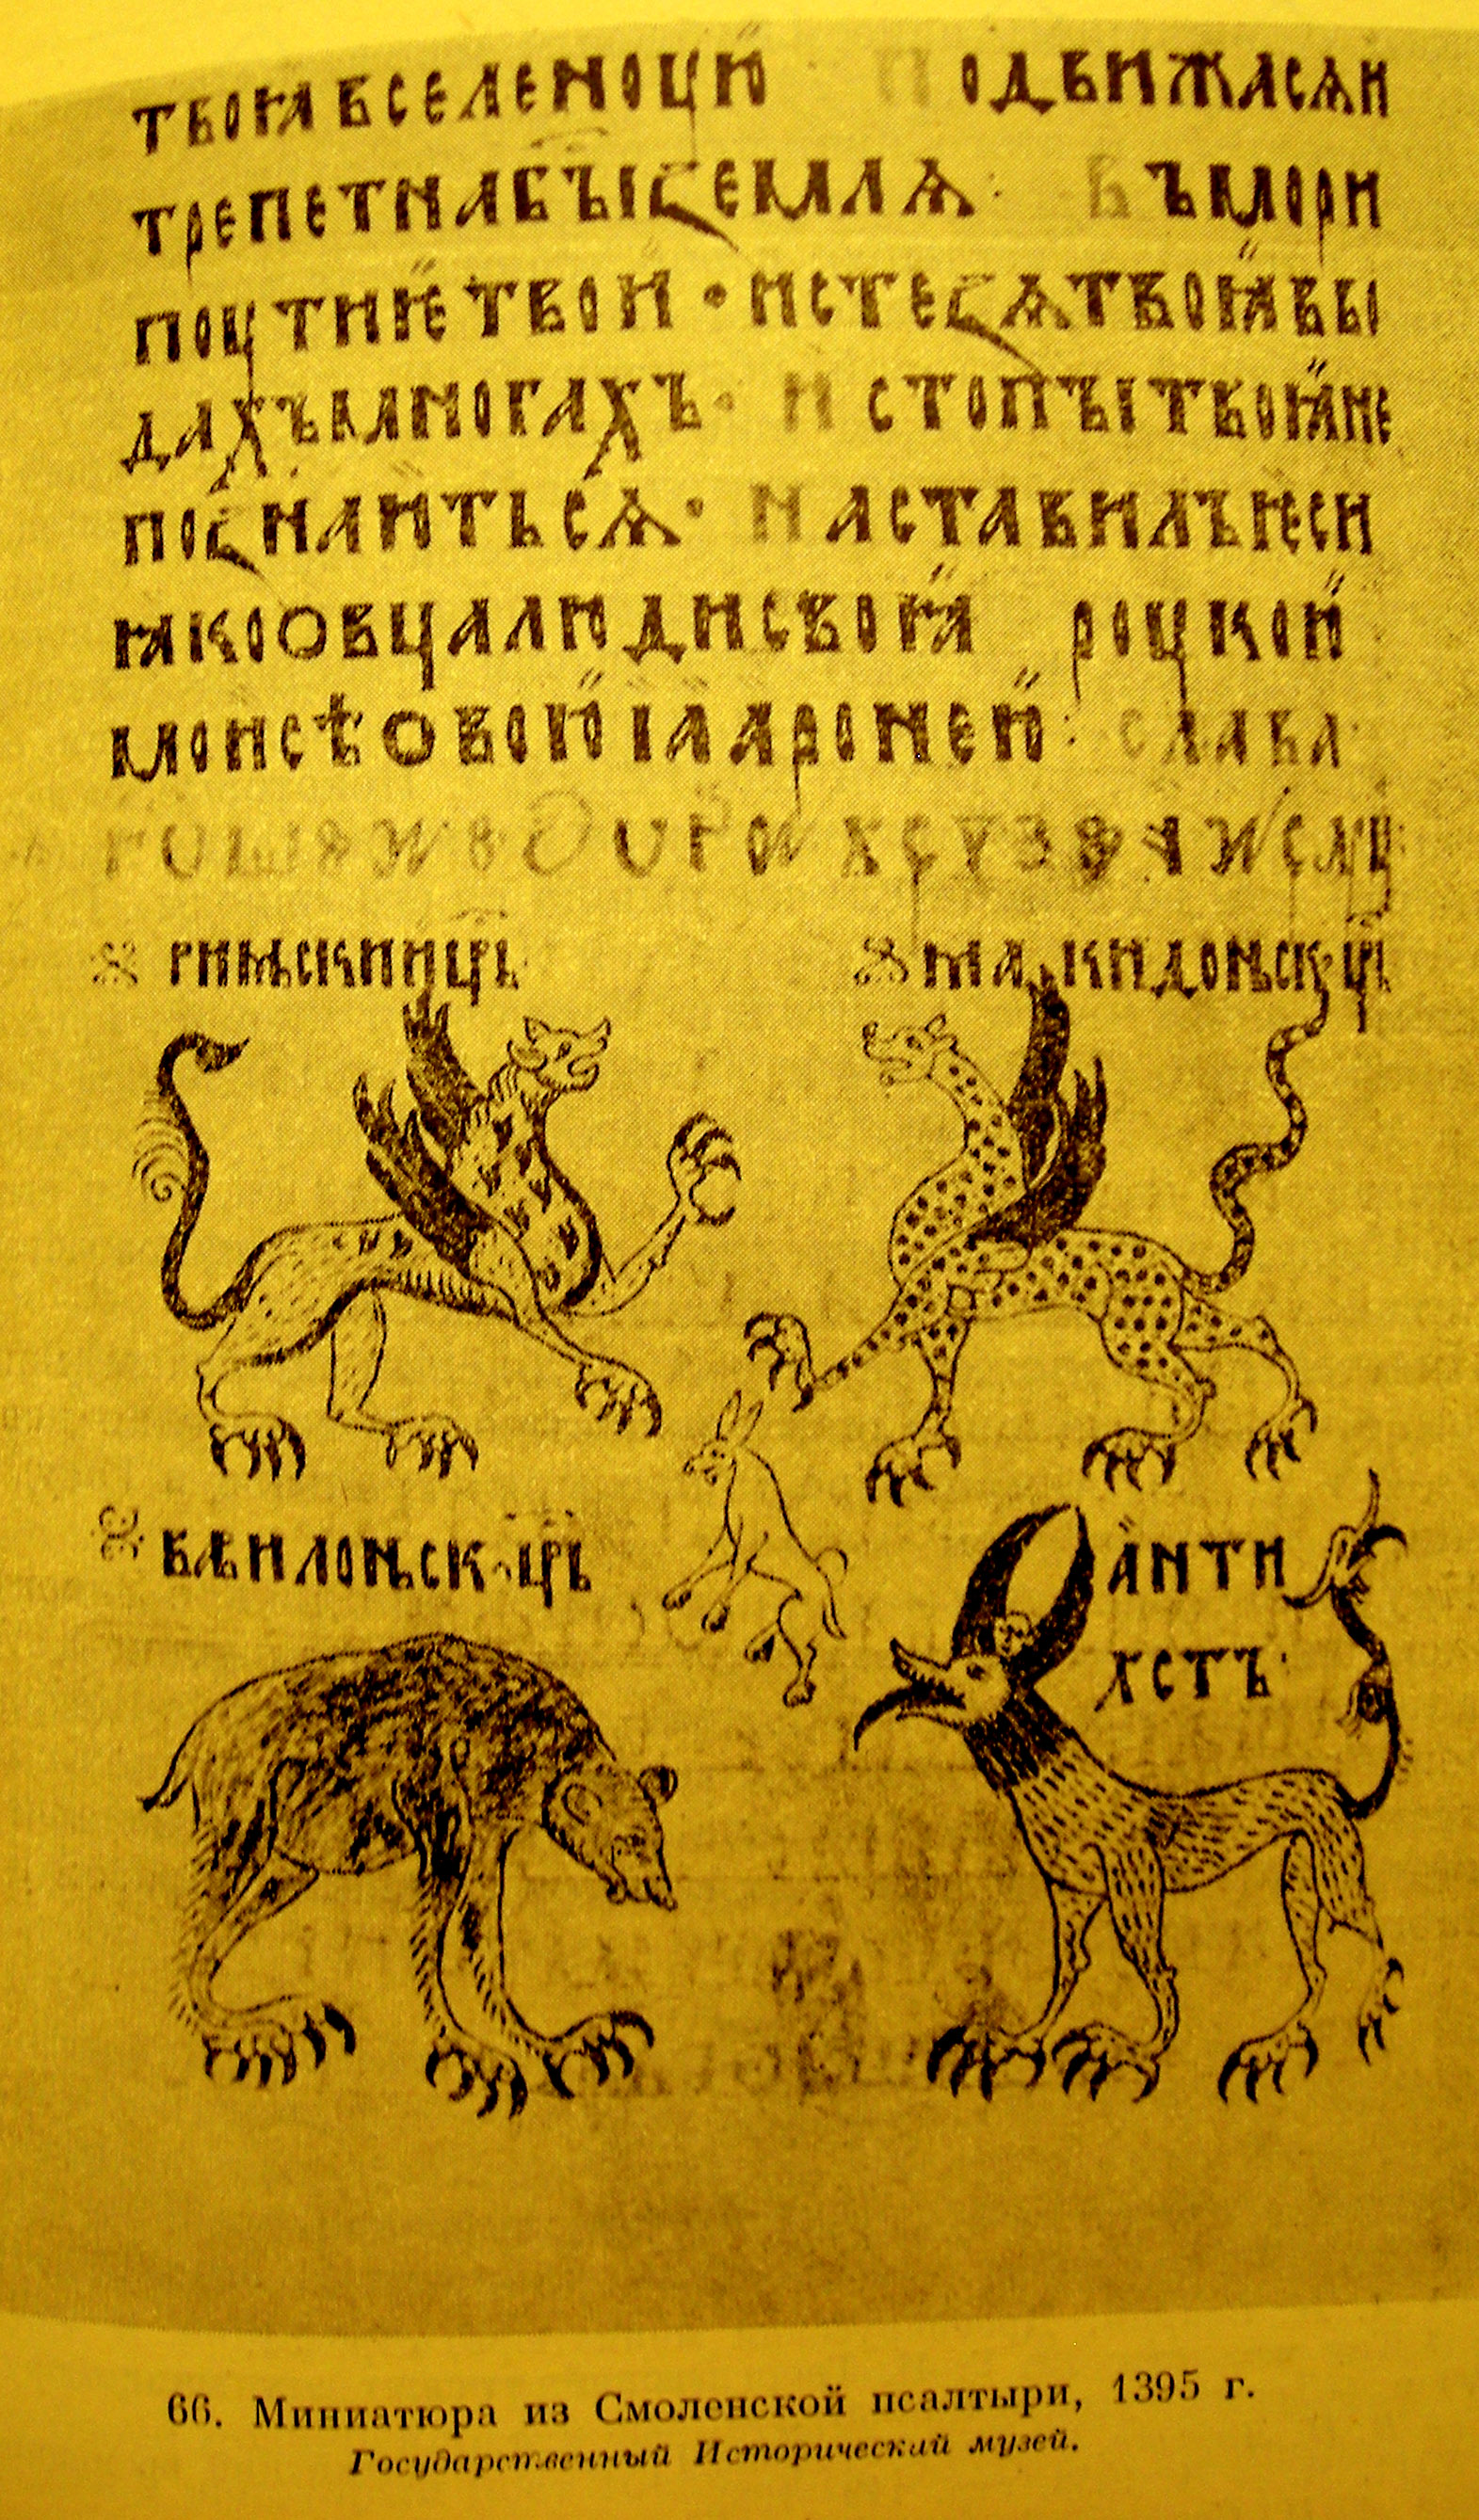 твоꙗ вселеноую подвижасѧ и
трепетна бысть землѧ: Въ мори
поутиѥ твои · и стезѧ твоꙗ въ во
дахъ многахъ · и стопы твоꙗ не
познаютьсѧ · Наставилъ ѥси
ꙗко овца люди своꙗ роукою
моисѣовою і ааронею: слава
римьскии црь
макидоньск црь
вавилоньск црь
анти
хстъ
66. Миниатюра из Смоленской псалтыри, 1395 г.
Государственный Исторический музей.